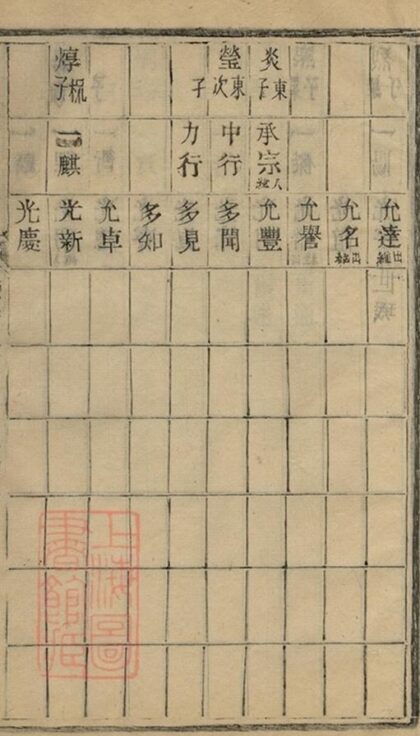 允達出繼
允名出
允譽
炎東子
承宗入
允豐
瑩東次子
中行
多聞
力行
多見
多知
允卓
焞子
一麒
光新
光慶
上海圖書館藏